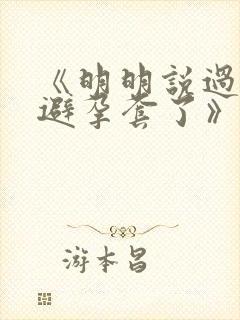 《明明説過
避孕套了》
游本昌